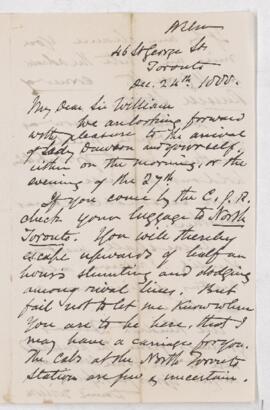 46 St George St
Toronto
Dec. 24th, 1888.
My Dear Sir William
We are looking forward
with pleasure to the arrival
of Lady Dawson and yourself,
either on the morning, or the
evening of the 27th.
If you come by the C. P. R.
check your luggage to North
Toronto. You will thereby
escape upwards of half an
hours shunting and dodging
among rival lines. But
fail not to let me know when
you are to be here, that I
may have a carriage for you.
The cabs at the North Toronto
Station are few & uncertain.